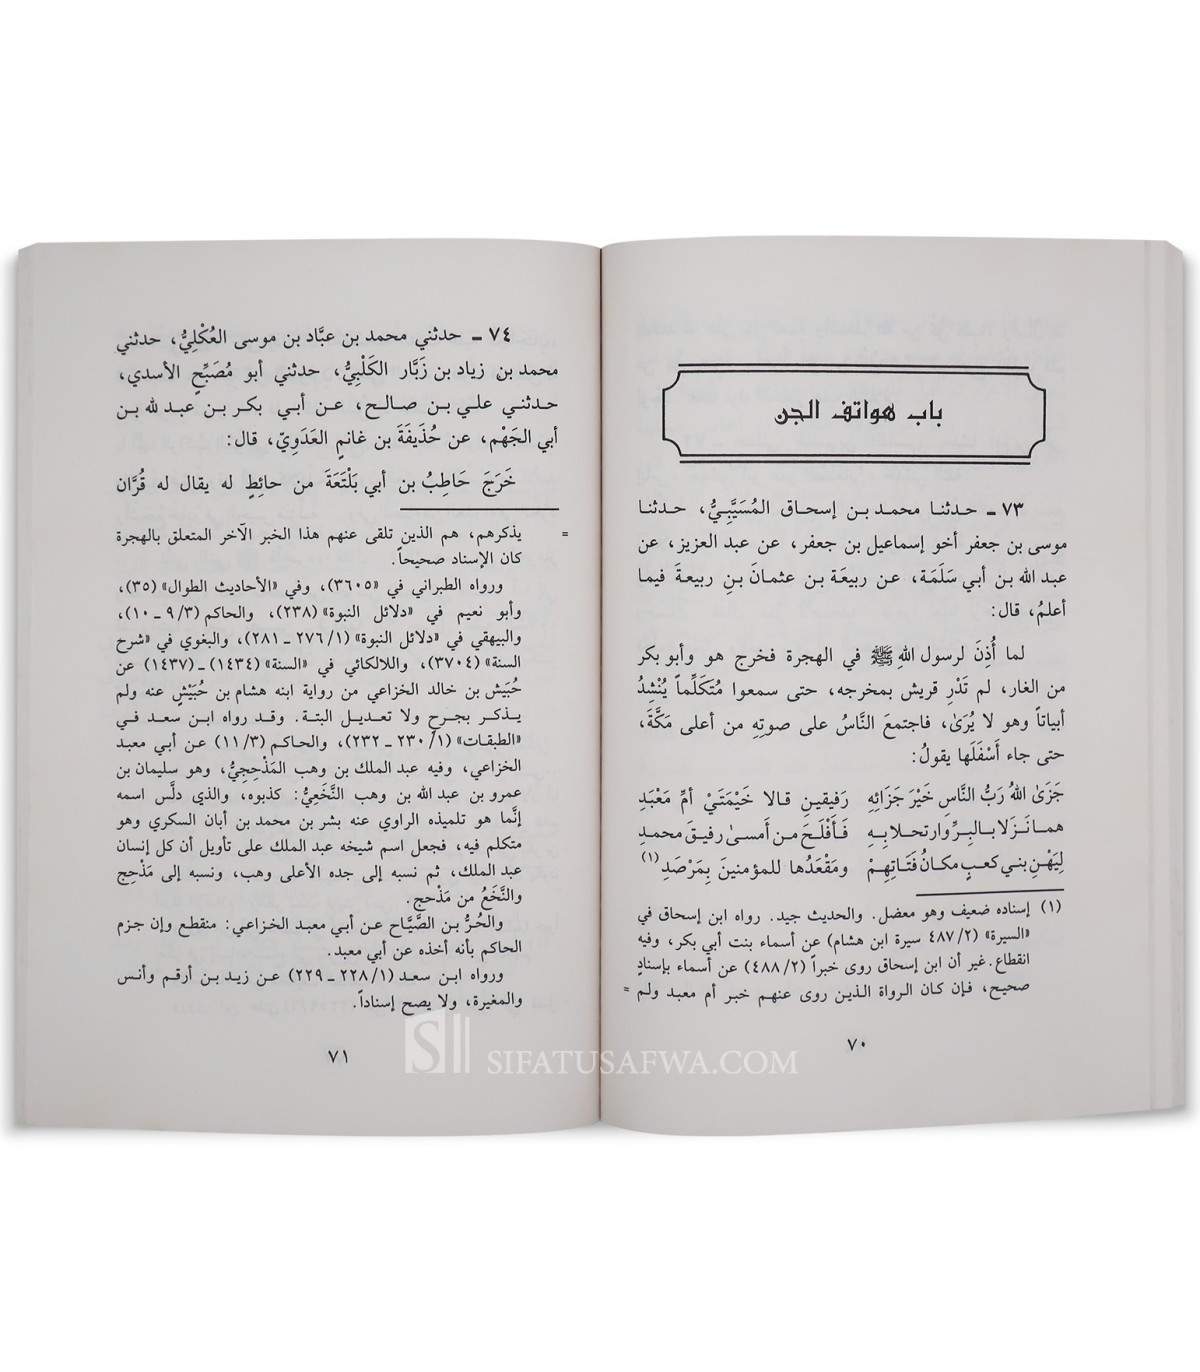 باب هواتف الجن
٧٣ ـ حدثنا محمد بن إسحاق المُسَيَّبِيُّ، حدثنا
موسى بن جعفر أخو إسماعيل بن جعفر، عن عبد العزيز، عن
عبد الله بن أبي سَلَمَة، عن ربيعَة بن عثمانَ بنِ ربيعةَ فيما
أعلمُ، قال:
لما أُذِنَ لرسول اللهِ ﷺ في الهجرة فخرج هو وأبو بكر
من الغار، لم تَدْرِ قريش بمخرجه، حتى سمعوا مُتَكَلِّماً يُنْشِدُ
أبياتاً وهو لا يُرَىٰ، فاجتمعَ النَّاسُ على صوتِهِ من أعلى مَكَّةَ،
حتى جاء أَسْفَلَها يقولُ:
جَزَىٰ اللهُ رَبُّ النَّاسِ خَيْرَ جَزَائِهِ رَفيقينِ قالا خَيْمَتَيْ أمِّ مَعْبَدِ
هما نَزَلَا بالبِرِّ وارتحلا بِهِ فَأَفْلَحَ من أمسىٰ رفيقَ محمدِ
لِيَهْنِ بني كعبٍ مكانُ فَتَاتِهِمْ ومَقْعَدُها للمؤمنينَ بِمَرْصَدِ (١)
(١) إسناده ضعيف وهو معضل. والحديث جيد. رواه ابن إسحاق في
«السيرة» (٤٨٧/٢ سيرة ابن هشام) عن أسماء بنت أبي بكر، وفيه
انقطاع. غير أن ابن إسحاق روى خبراً (٤٨٨/٢) عن أسماء بإسنادٍ
صحيح، فإن كان الرواة الذين روى عنهم خبر أم معبد ولم =
٧٠
٧٤ ـ حدثني محمد بن عبَّاد بن موسى العُكْلِيُّ، حدثني
محمد بن زياد بن زَبَّار الكَلْبِيُّ، حدثني أبو مُصَبِّحٍ الأسدي،
حدثني علي بن صالح، عن أبي بكر بن عبد لله بن
أبي الجَهْم، عن حُذَيفَةَ بن غانمٍ العَدَوِيّ، قال:
خَرَجَ حَاطِبُ بن أبي بَلْتَعَةَ من حائِطٍ له يقال له قُرَّان
= يذكرهم، هم الذين تلقى عنهم هذا الخبر الآخر المتعلق بالهجرة
كان الإسناد صحيحاً.
ورواه الطبراني في «٣٦٠٥)، وفي «الأحاديث الطوال» (٣٥)،
وأبو نعيم في «دلائل النبوة» (٢٣٨)، والحاكم (٩/٣ ـ ١٠)،
والبيهقي في «دلائل النبوة» (٢٧٦/١ ـ ٢٨١)، والبغوي في «شرح
السنة» (٣٧٠٤)، واللالكائي في «السنة» (١٤٣٤) ـ (١٤٣٧) عن
حُبَيش بن خالد الخزاعي من رواية ابنه هشام بن حُبَيْشٍ عنه ولم
يذكر بجرح ولا تعديل البتة. وقد رواه ابن سعد في
«الطبقات» (٢٣٠/١ ـ ٢٣٢)، والحاكم (١١/٣) عن أبي معبد
الخزاعي، وفيه عبد الملك بن وهب المَذْحِجِيُّ، وهو سليمان بن
عمرو بن عبد الله بن وهب النَّخَعِيُّ: كذبوه، والذي دلَّس اسمه
إنَّما هو تلميذه الراوي عنه بشر بن محمد بن أبان السكري وهو
متكلم فيه، فجعل اسم شيخه عبد الملك على تأويل أن كل إنسان
عبد الملك، ثم نسبه إلى جده الأعلى وهب، ونسبه إلى مَذْحِج
والنَّخَعُ من مَذْحج.
والحُرُّ بن الصَّيَّاح عن أبي معبد الخزاعي: منقطع وإن جزم
الحاكم بأنه أخذه عن أبي معبد.
ورواه ابن سعد (٢٢٨/١ ـ ٢٢٩) عن زيد بن أرقم وأنس
والمغيرة، ولا يصح إسناداً.
٧١
SIFATUSAFWA.COM